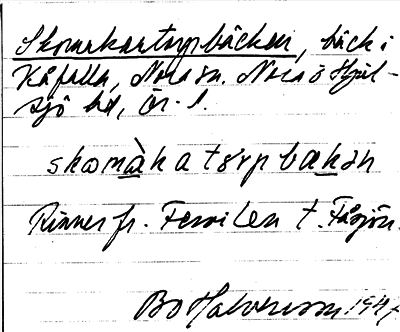 Skomakartorpbäcken, bäck i
Kåfalla, Nora sn. Nora o Hjul-
sjö bd, Ör. l.
skomàkatorpbækən
Rinner fr. Femilen t. Fåsjön.
Bo Halvarsson 194